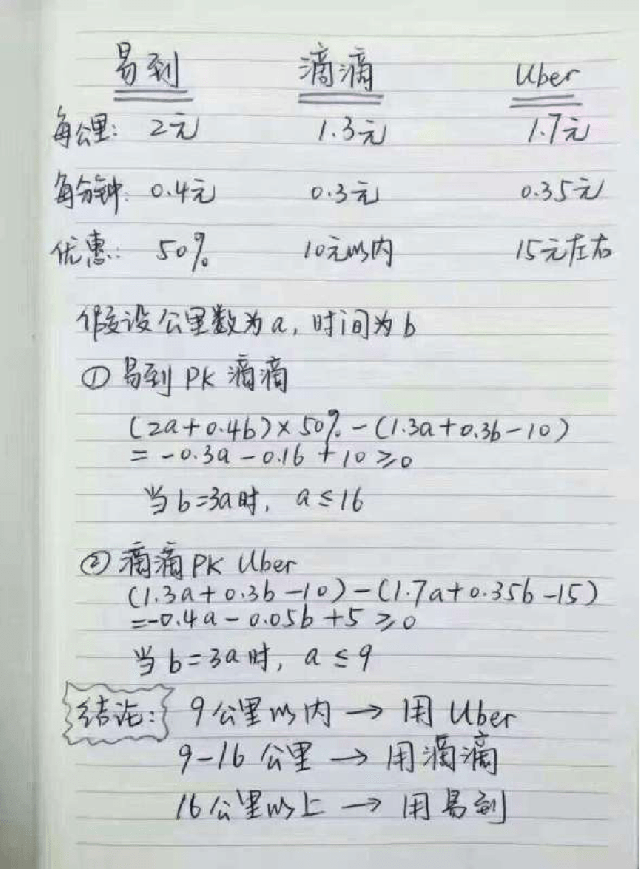 易到 滴滴 Uber
每公里: 2元 1.3元 1.7元
每分钟: 0.4元 0.3元 0.35元
优惠: 50% 10元以内 15元左右
假设公里数为a, 时间为b
① 易到 PK 滴滴
(2a+0.4b)×50%-(1.3a+0.3b-10)
=-0.3a-0.1b+10≥0
当b=3a时, a≤16
② 滴滴PK Uber
(1.3a+0.3b-10)-(1.7a+0.35b-15)
=-0.4a-0.05b+5≥0
当b=3a时, a≤9
结论: 9公里以内→用Uber
9-16公里→用滴滴
16公里以上→用易到